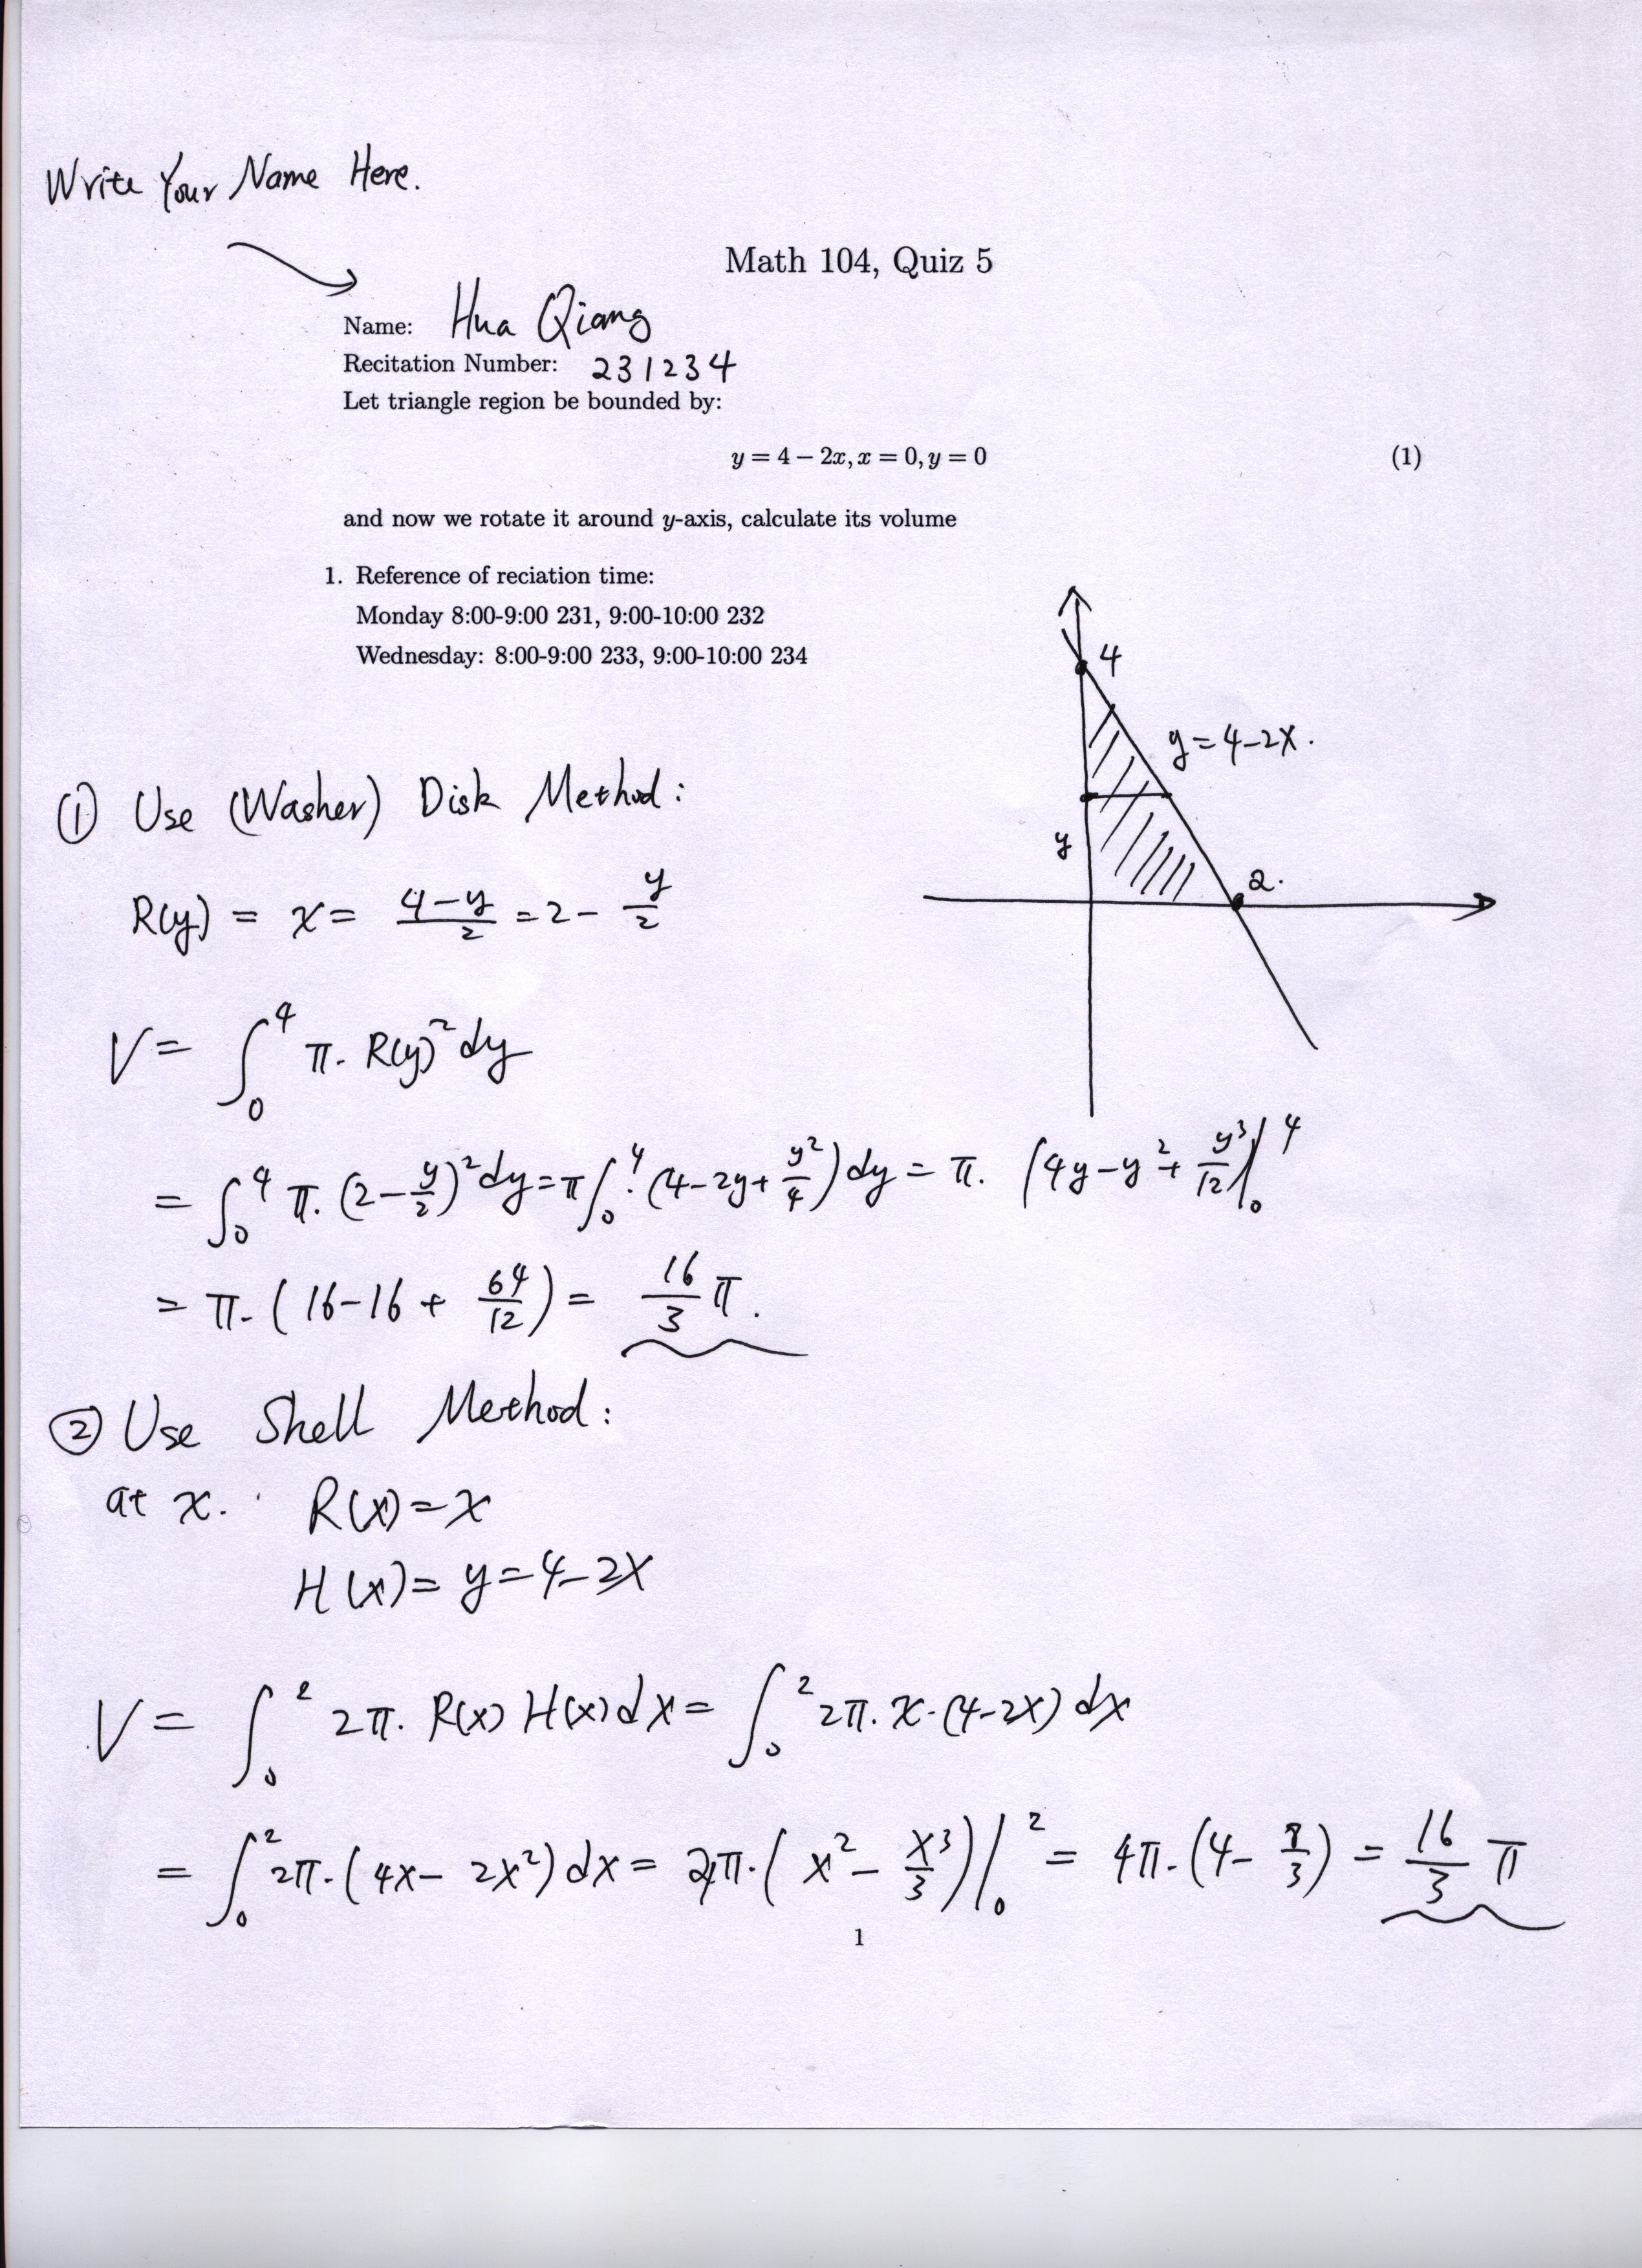 Write Your Name Here.
Math 104, Quiz 5
Name: Hua Qiang
Recitation Number: 231234
Let triangle region be bounded by:
y = 4 − 2x, x = 0, y = 0 (1)
and now we rotate it around y-axis, calculate its volume
1. Reference of reciation time:
Monday 8:00-9:00 231, 9:00-10:00 232
Wednesday: 8:00-9:00 233, 9:00-10:00 234
4
y = 4-2x.
y
2.
① Use (Washer) Disk Method:
R(y) = x = (4-y)/2 = 2 - y/2
V = ∫₀⁴ π. R(y)² dy
= ∫₀⁴ π. (2 - y/2)² dy = π ∫₀⁴ (4-2y+ y²/4) dy = π. (4y - y² + y³/12)|₀⁴
= π. (16-16 + 64/12) = 16/3 π.
② Use Shell Method:
at x. R(x) = x
H(x) = y = 4-2x
V = ∫₀² 2π. R(x) H(x) dx = ∫₀² 2π. x. (4-2x) dx
= ∫₀² 2π. (4x - 2x²) dx = 4π. (x² - x³/3)|₀² = 4π. (4 - 8/3) = 16/3 π
1